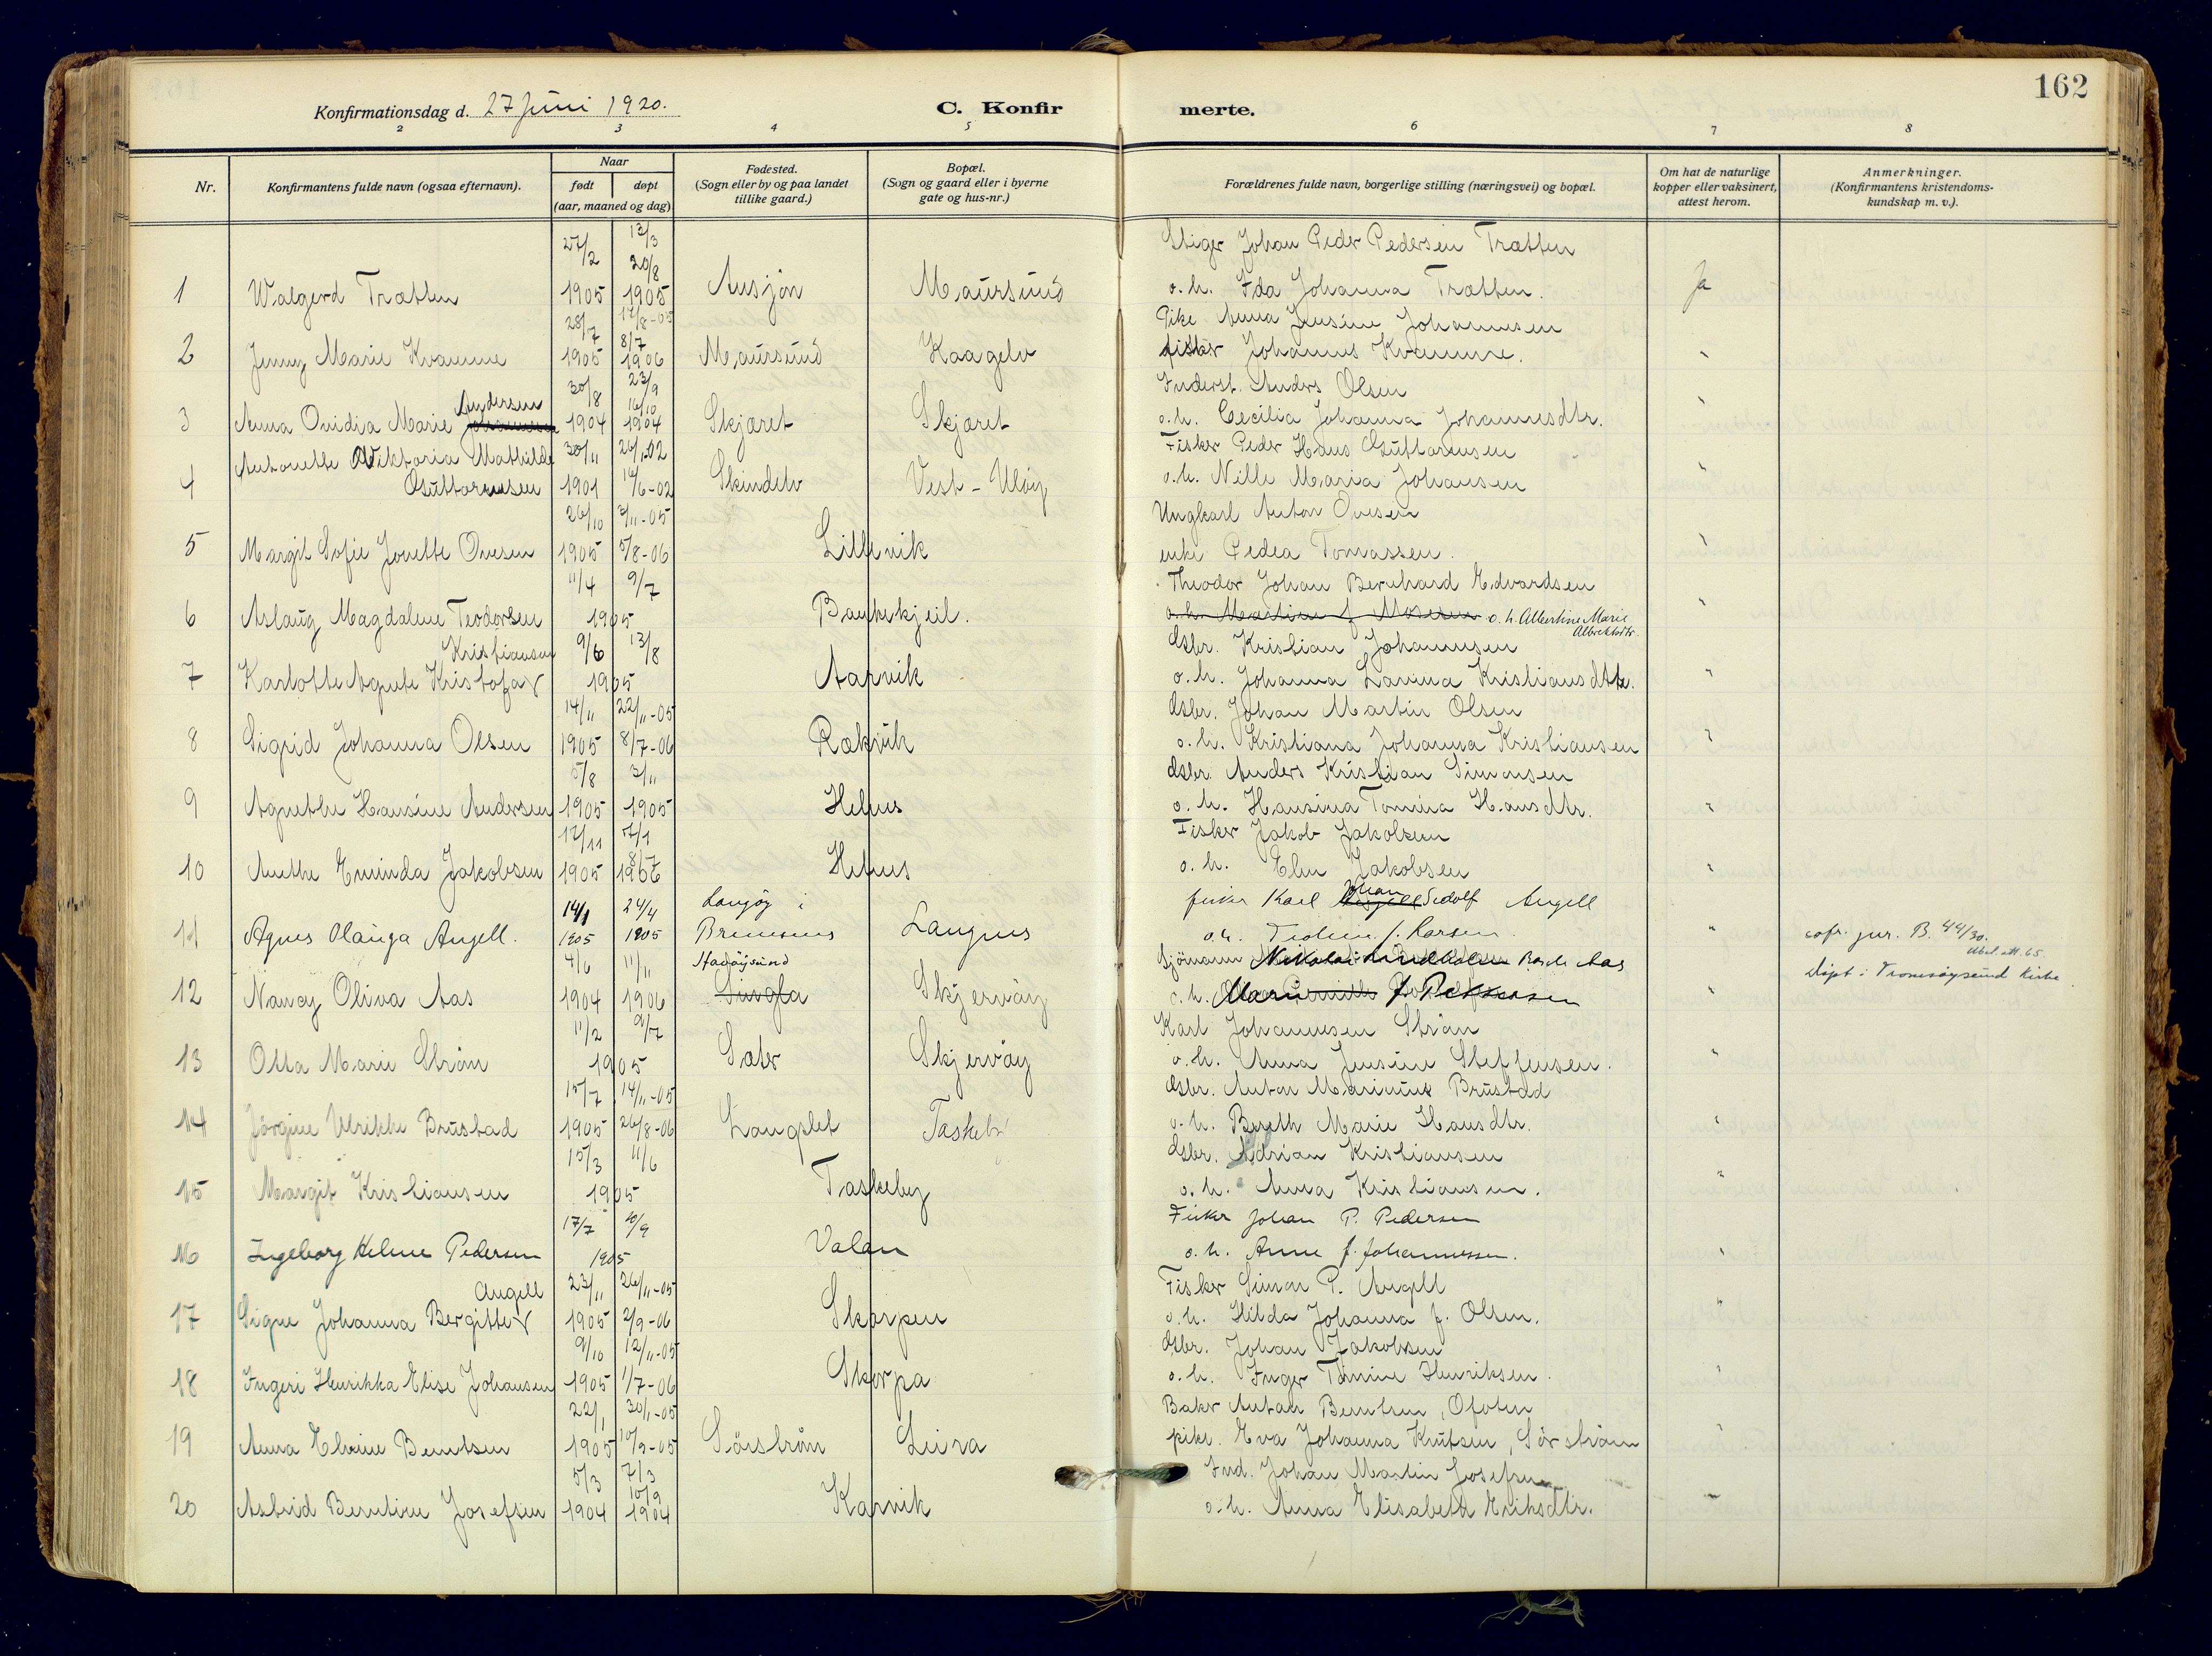 162
Konfirmationsdag d. 27 Juni 1920.
C. Konfir merte.
2 3 4 5 6 7 8
Nr.
Konfirmantens fulde navn (ogsaa efternavn).
Naar
født døpt
(aar, maaned og dag)
Fødested.
(Sogn eller by og paa landet
tillike gaard.)
Bopæl.
(Sogn og gaard eller i byerne
gate og hus-nr.)
Forældrenes fulde navn, borgerlige stilling (næringsvei) og bopæl.
Om hat de naturlige
kopper eller vaksinert,
attest herom.
Anmerkninger.
(Konfirmantens kristendoms-
kundskap m. v.).
27/2 13/3 Stiger Johan Peder Pedersen Trætten
20/8
1 Walgerd Trætten 1905 1905 Ausjøn Maursund o. h. Ida Johanna Trætten. Ja
28/7 17/8-05 Pike Anna Jensine Johannesen
8/7
2 Jenny Marie Kvamme 1905 1906 Maursund Kaagelv fisker Johannes Kvamme. "
30/8 23/9 Inderst. Anders Olsen
Andersen 16/10
3 Anna Ovidia Marie 1904 1904 Skjæret Skjæret o. h. Cecilia Johanna Johannesdtr. "
Antonette Viktoria Mathilde 30/11 26/1-02 Fisker Peder Hans Guttormsen
4 Guttormsen 1901 16/6-02 Skindelv Vest-Uløy o. h. Nille Maria Johansen "
26/10 3/11-05 Ungkarl Anton Ovesen
5 Margit Sofie Jonette Ovesen 1905 5/8-06 Lillevik enke Pedea Tomassen. "
11/4 9/7 Theodor Johan Bernhard Edvardsen
6 Aslaug Magdalene Teodorsen 1905 Bankekjeil. o. h. Albertine Marie "
Albrektsdtr.
Kristiansen 9/6 13/8 Gbr. Kristian Johannesen
7 Karlotte Agnete Kristofa 1905 Aarvik o. h. Johanna Lamma Kristiansdtr. "
14/11 22/11-05 Gbr. Johan Martin Olsen
8 Sigrid Johanna Olsen 1905 8/7-06 Rækvik o. h. Kristiana Johanna Kristiansen "
5/8 3/11 Gbr. Anders Kristian Simonsen
9 Agnethe Hansine Andersen 1905 1905 Helnes o. h. Hansina Tomina Hansdtr. "
12/11 7/1 Fisker Jakob Jakobsen
8/7
10 Anethe Eminda Jakobsen 1905 1906 Helnes o. h. Elen Jakobsen "
14/1 24/4 Langøy i fisker Karl Johan Sedolf Angell
11 Agnes Olauga Angell. 1905 1905 Bremsnes Langnes o. h. f. Larsen. " B. 44/30.
4/6 11/11 Havøysund Sjömann Nikolai Aas
12 Nancy Oliva Aas 1904 1906 Singla Skjervøy o. h. Marie f. Pettersen " Döpt i Tromsøysund kirke.
11/2 9/7 Karl Johannesen Strøm
13 Otta Marie Strøm 1905 Sæter Skjervøy o. h. Anna Jensine Steffensen. "
15/7 14/11-05 Gbr. Anton Marinius Brustad
14 Jörgine Ulrikke Brustad 1905 26/8-06 Langslet Taskeby o. h. Bereth Marie Hansdtr. "
15/3 11/6 Gbr. Adrian Kristiansen
15 Margit Kristiansen 1905 Taskeby o. h. Anna Kristiansen. "
17/7 10/9 Fisker Johan P. Pedersen
16 Ingeborg Helene Pedersen 1905 Valan o. h. Anne f. Johannessen. "
Angell 23/11 26/11-05 Fisker Simon P. Angell
17 Signe Johanna Bergitte 1905 2/9-06 Skarpen o. h. Hilda Johanna f. Olsen. "
9/10 12/11-05 Gbr. Johan Jakobsen
18 Ingeri Henrikka Elise Johansen 1905 1/7-06 Skorpa o. h. Inger Tomine Henriksen. "
22/1 30/1-05 Baker Antan Berntsen, Ofoten
19 Anna Elvine Berntsen 1905 10/9-05 Sørstrøm Leira pike. Eva Johanna Knutsen, Sørstrøm "
5/3 7/3 Ind. Johan Martin Josefsen
10/9
20 Astrid Berntine Josefsen 1904 1904 Karvik o. h. Anna Elisabeth Eriksdtr. "